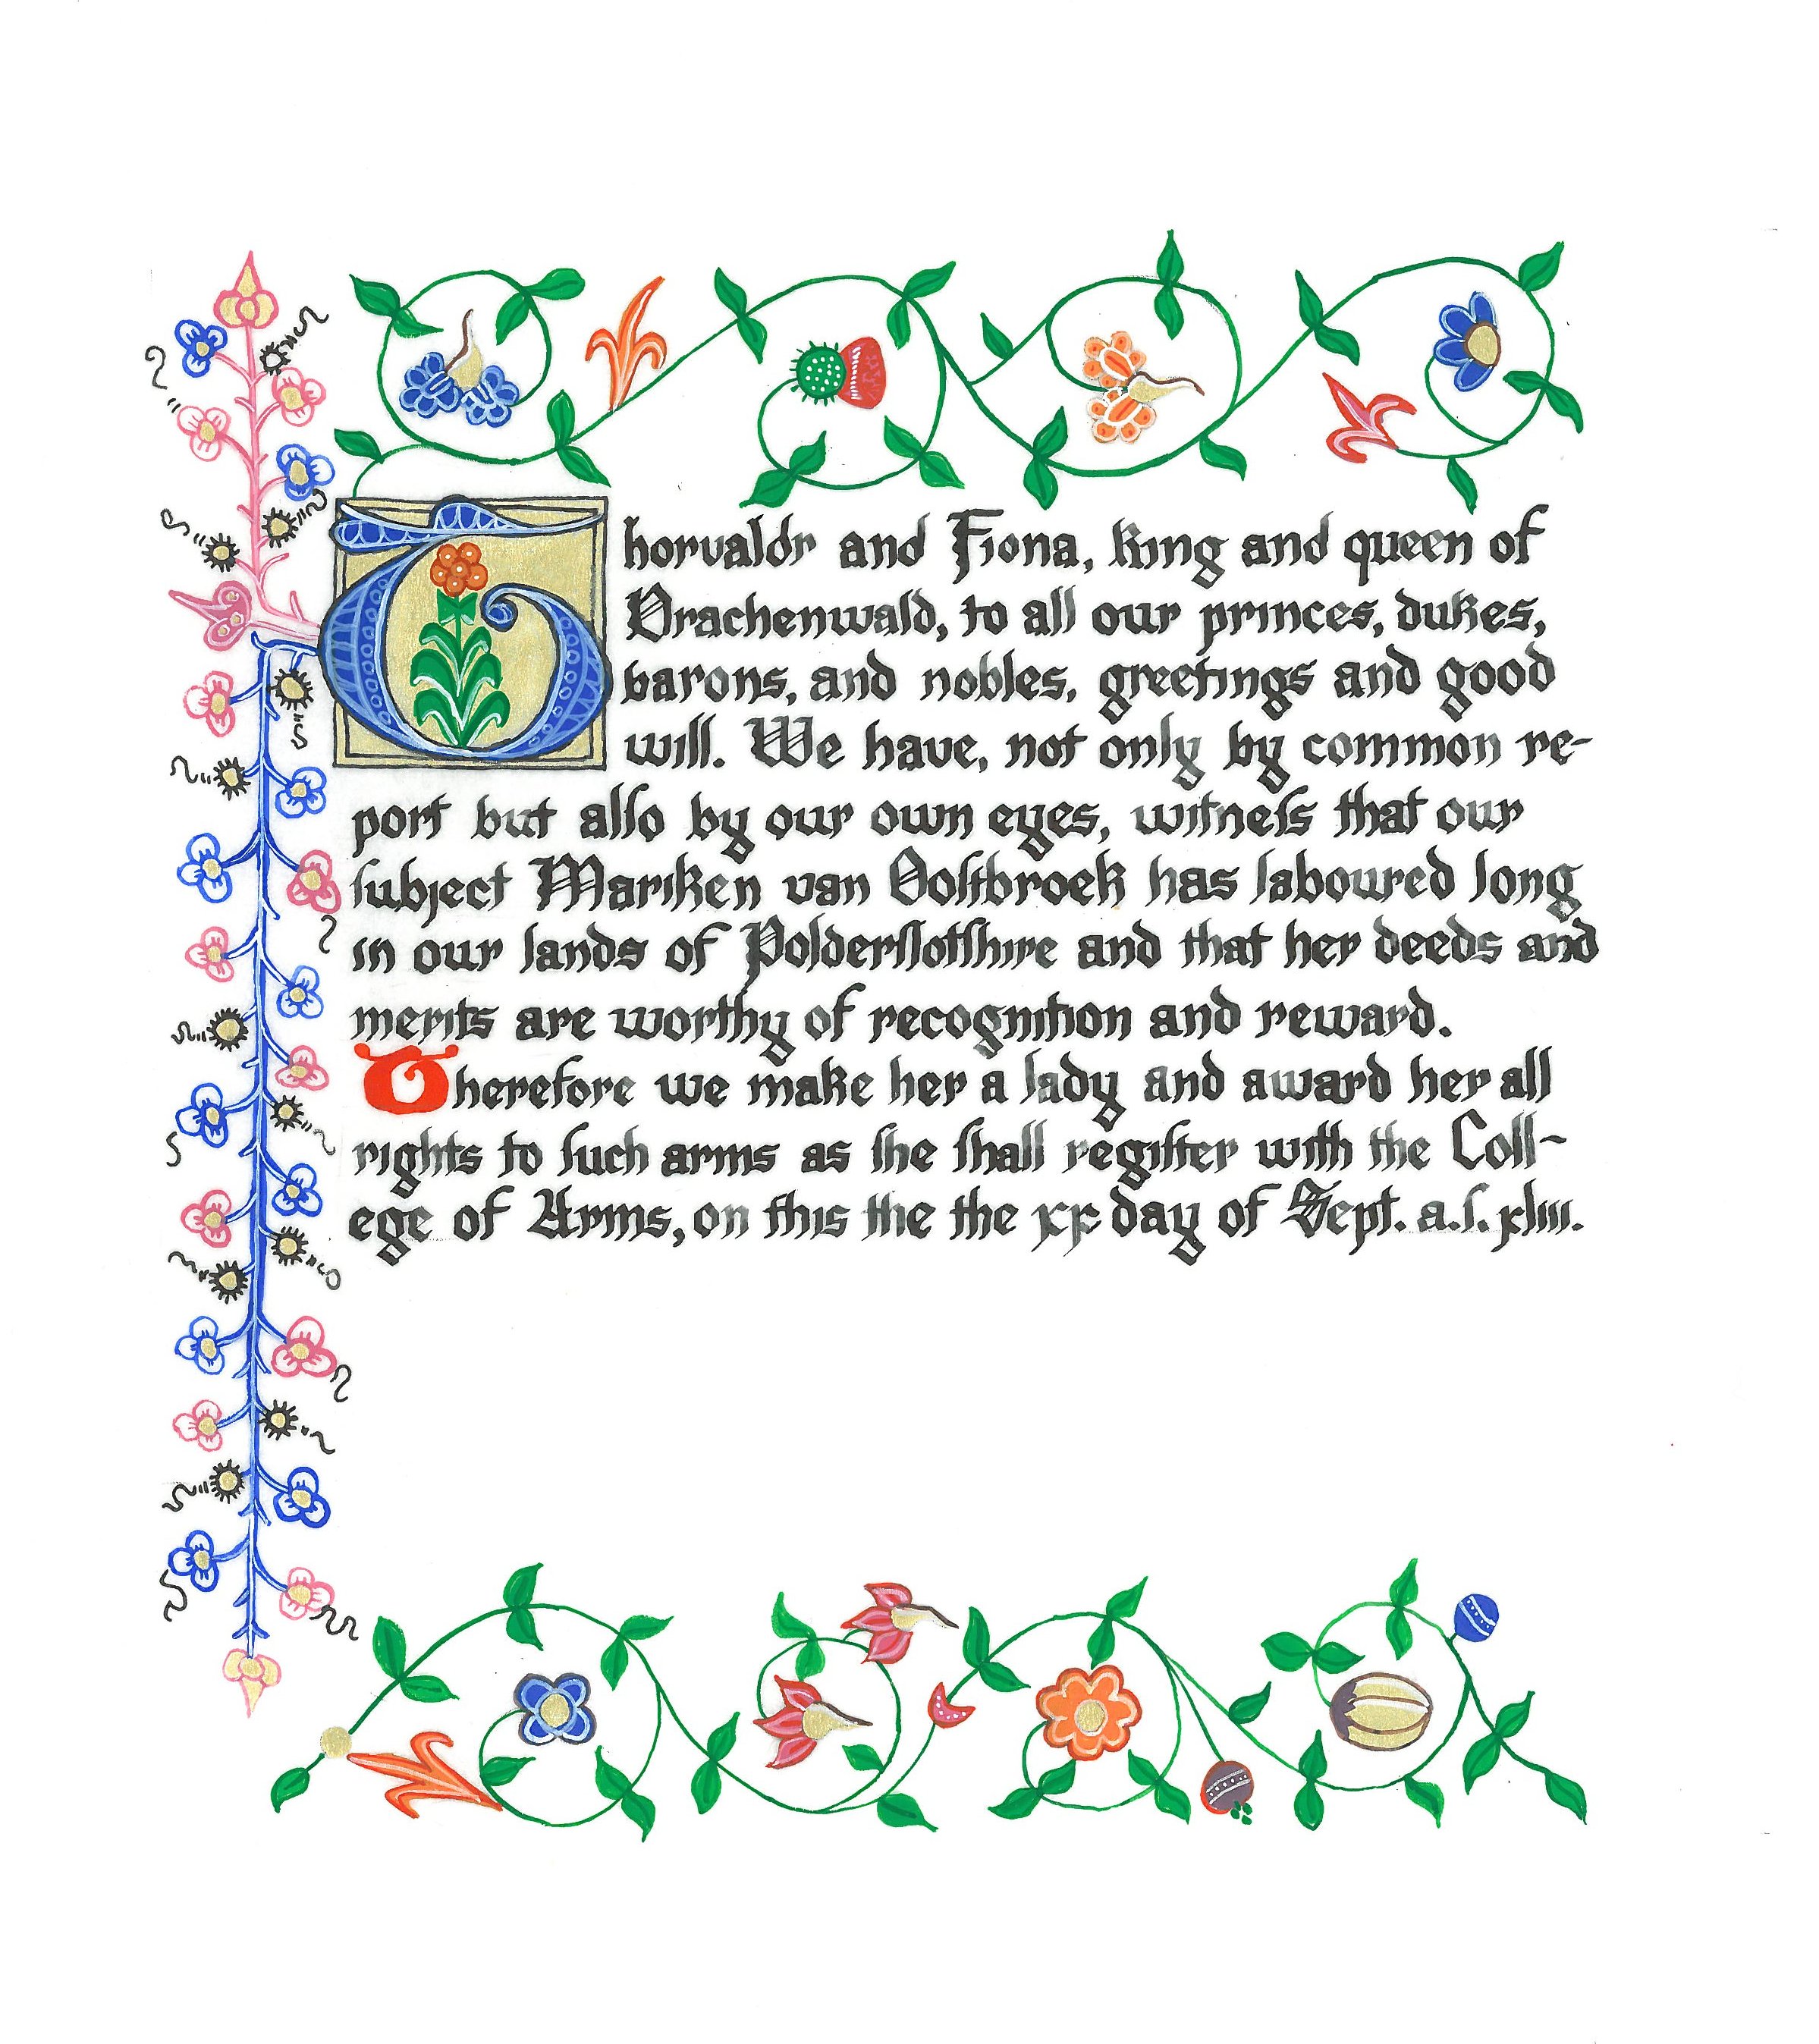 Thorvaldr and Fiona, king and queen of
Drachenwald, to all our princes, dukes,
barons, and nobles, greetings and good
will. We have, not only by common re-
port but alſo by our own eyes, witneſs that our
ſubject Mariken van Ooſtbroek has laboured long
in our lands of Polderſlotſhire and that her deeds and
merits are worthy of recognition and reward.
Therefore we make her a lady and award her all
rights to ſuch arms as ſhe ſhall regiſter with the Coll-
ege of Arms, on this the the xx day of Sept. a.ſ. xliii.